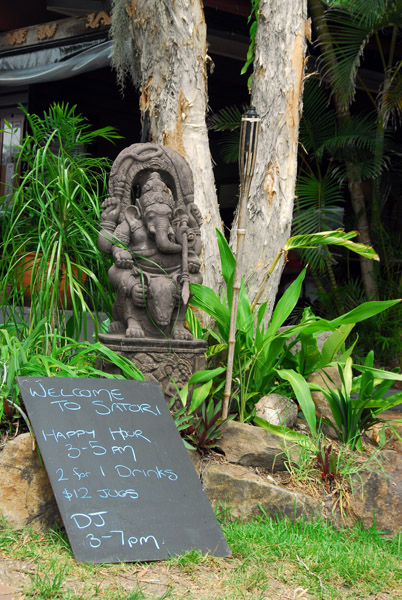 WELCOME
TO SATORI
HAPPY HOUR
3-5 AM
2 for 1 DRINKS
$12 JUGS
DJ
3-7pm.